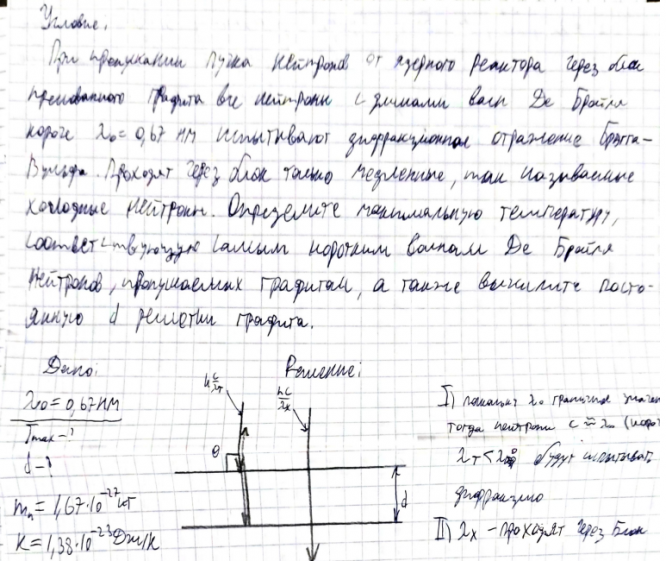 Условие.
При пропускании пучка нейтронов от ядерного реактора через блок
прессованного графита все нейтроны с длинами волн Де Бройля
короче λ₀ = 0,67 нм испытывают дифракционное отражение Брэгга-
Вульфа. Проходят через блок только медленные, так называемые
холодные нейтроны. Определите максимальную температуру,
соответствующую самым коротким волнам Де Бройля
нейтронов, пропускаемых графитом, а также вычислите посто-
янную d решетки графита.
Дано:
λ₀ = 0,67 нм
Tmax - ?
d - ?
mₙ = 1,67·10⁻²⁷ кг
K = 1,38·10⁻²³ Дж/К
Решение:
hc/λт
hc/λx
θ
d
I) поскольку λ₀ граничное
тогда нейтроны с
λт < λ₀ будут испытывать
дифракцию
II) λx - проходят через блок